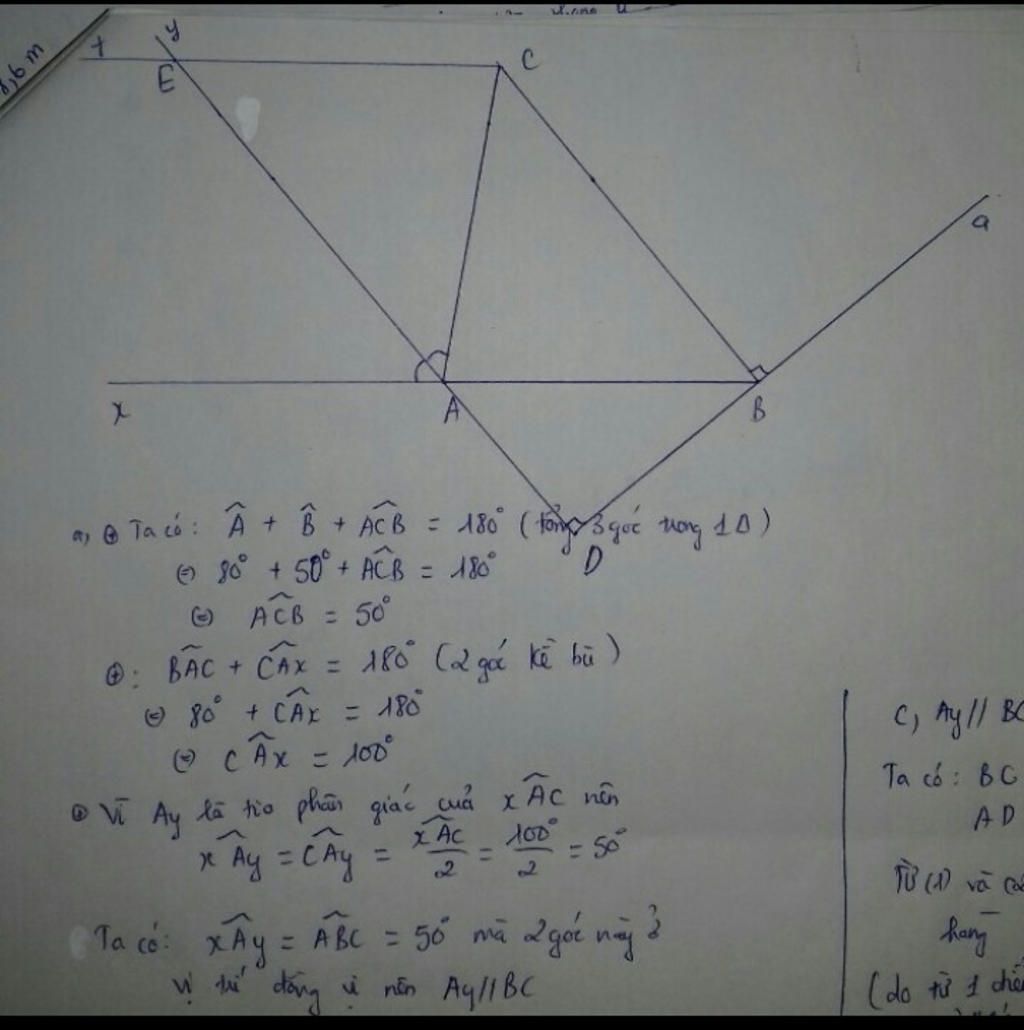 8,6 m
t
y
E
C
a
x
A
B
D
a, ⊕ Ta có: Â + B̂ + ACB̂ = 180° (tổng 3 góc trong 1Δ)
(=) 80° + 50° + ACB̂ = 180°
(=) ACB̂ = 50°
⊕: BAĈ + CAx̂ = 180° (2 góc kề bù)
(=) 80° + CAx̂ = 180°
(=) CAx̂ = 100°
⊕ Vì Ay là tia phân giác của xAĈ nên
xAŷ = CAŷ = xAĈ/2 = 100°/2 = 50°
Ta có: xAŷ = ABĈ = 50° mà 2 góc này ở
vị trí đồng vị nên Ay//BC
C, Ay // BC
Ta có: BC
AD
Từ (1) và
hang
(do từ 1